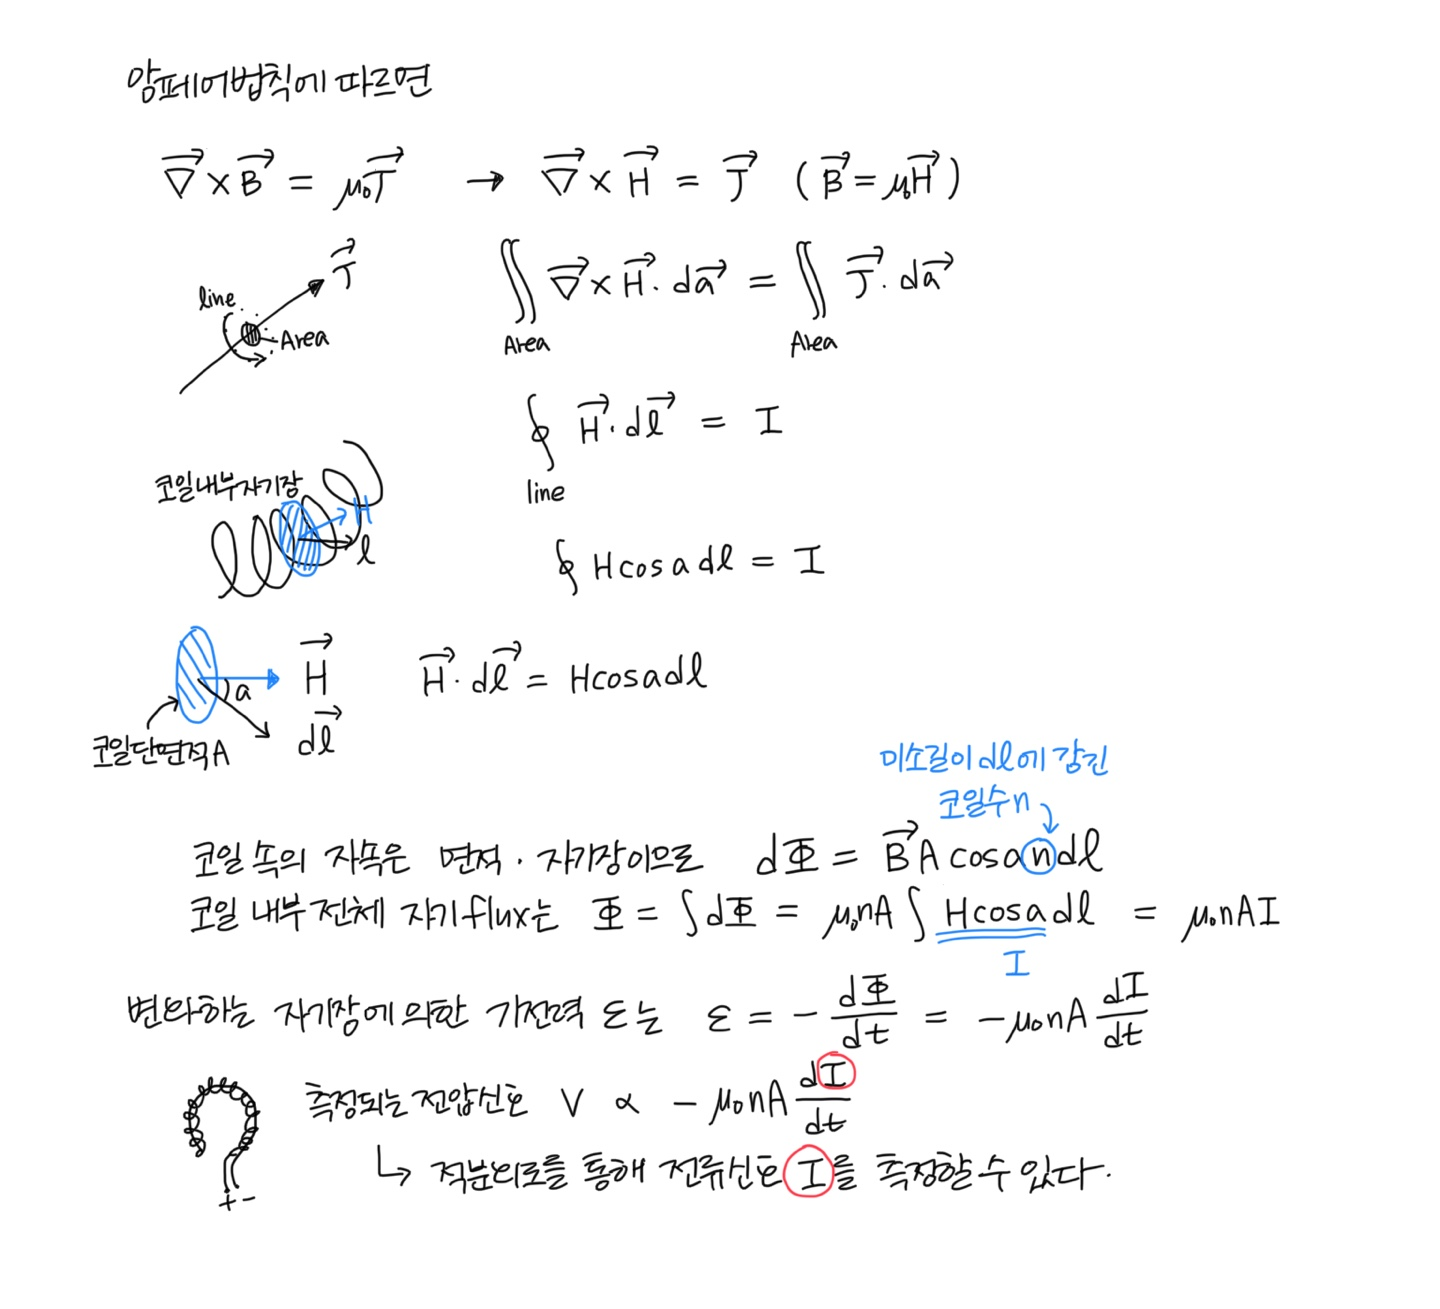 암페어법칙에 따르면
∇⃗ × B⃗ = μ₀J⃗ → ∇⃗ × H⃗ = J⃗ (B⃗ = μ₀H⃗)
J⃗
line
Area
∬ ∇⃗ × H⃗ · da⃗ = ∬ J⃗ · da⃗
Area Area
∮ H⃗ · dl⃗ = I
line
코일내부자기장
H
l
∮ Hcosa dl = I
H⃗
a
dl⃗
코일단면적A
H⃗ · dl⃗ = Hcosadl
미소길이 dl에 감긴
코일수 n
코일 속의 자속은 면적 · 자기장이므로 dΦ = B⃗ A cosa n dl
코일 내부 전체 자기 flux는 Φ = ∫dΦ = μ₀nA ∫ Hcosa dl = μ₀nAI
I
변화하는 자기장에 의한 기전력 ε는 ε = - dΦ/dt = -μ₀nA dI/dt
측정되는 전압신호 V ∝ - μ₀nA dI/dt
↳ 적분회로를 통해 전류신호 I를 측정할 수 있다.
+ -